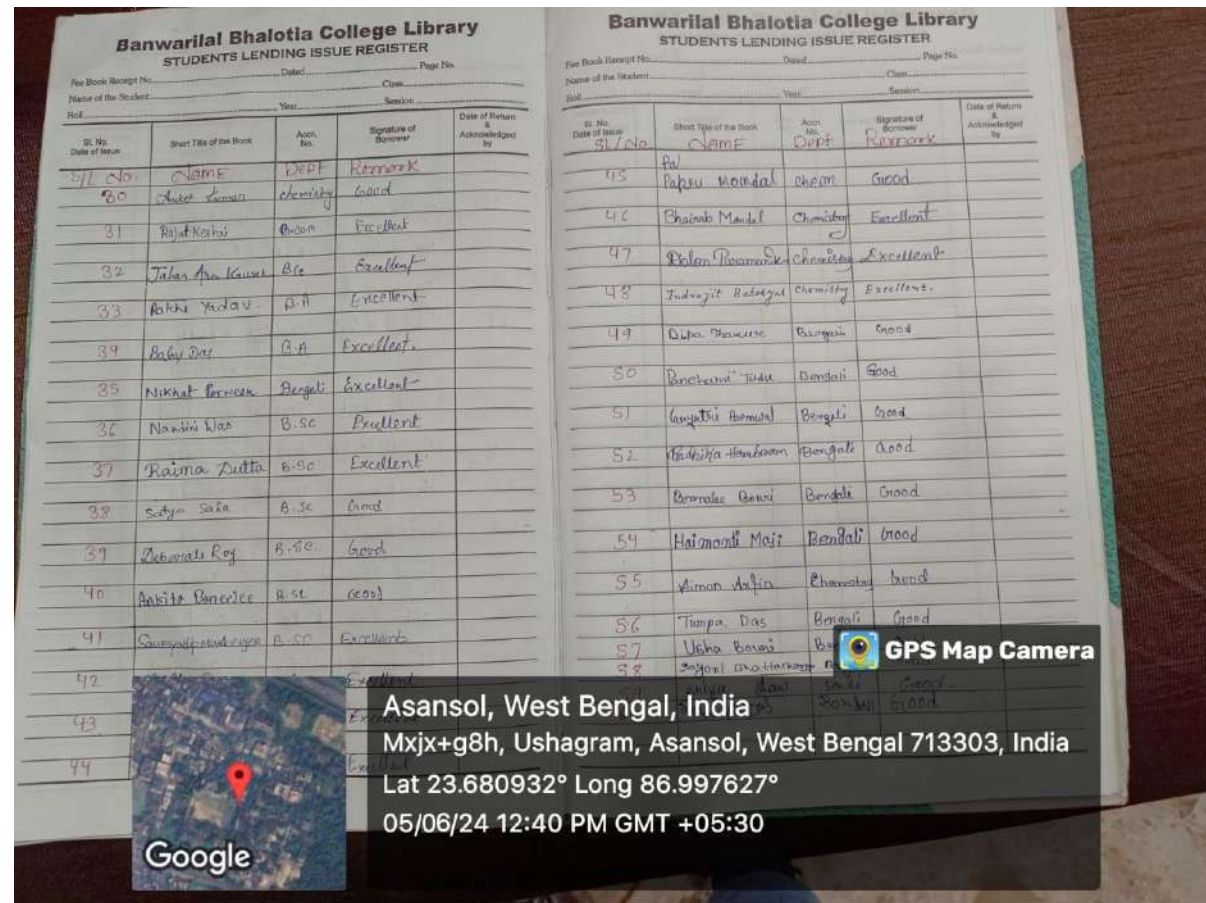 Banwarilal Bhalotia College Library
STUDENTS LENDING ISSUE REGISTER
Fee Book Receipt No. Dated Page No.
Name of the Student Class
Roll Year Session
Sl. No. Date of Issue Short Title of the Book Accn. No. Signature of Borrower Date of Return & Acknowledged by
S/L No. NAME Dept Remark
30 Aniket Kumar chemistry Good
31 Rajat Keshri B.com Excellent
32 Jahan Ara Kausar BSc Excellent
33 Rakhi Yadav. B.A Excellent
34 Baby Das B.A Excellent.
35 Nikhat Perween Bengali Excellent
36 Nandini Das B.Sc Excellent
37 Raima Dutta B.Sc Excellent
38 Satya Saha B.Sc Good
39 Roy B.Sc. Good
40 Ankita Banerjee B.Sc Good
41 B.SC Excellent
42 Excellent
43
44 Excellent
Banwarilal Bhalotia College Library
STUDENTS LENDING ISSUE REGISTER
Fee Book Receipt No. Dated Page No.
Name of the Student Class
Roll Year Session
Sl. No. Date of Issue Short Title of the Book Accn. No. Signature of Borrower Date of Return & Acknowledged by
SL/No NAME Dept Remark
Pa
45 Papsu Mondal Chem Good
46 Bhairab Mandal Chemistry Excellent
47 Paramanik Chemistry Excellent
48 Indrajit Chemistry Excellent.
49 Dipa Bengali Good
50 Panchami Tudu Bengali Good
51 Bengali Good
52 Hembram Bengali Good
53 Bouri Bengali Good
54 Haimanti Maji Bengali Good
55 Aiman Chemistry Good
56 Tumpa Das Bengali Good
57 Usha Bouri
58 Sayani
Good.
Good
GPS Map Camera
Asansol, West Bengal, India
Mxjx+g8h, Ushagram, Asansol, West Bengal 713303, India
Lat 23.680932° Long 86.997627°
05/06/24 12:40 PM GMT +05:30
Google